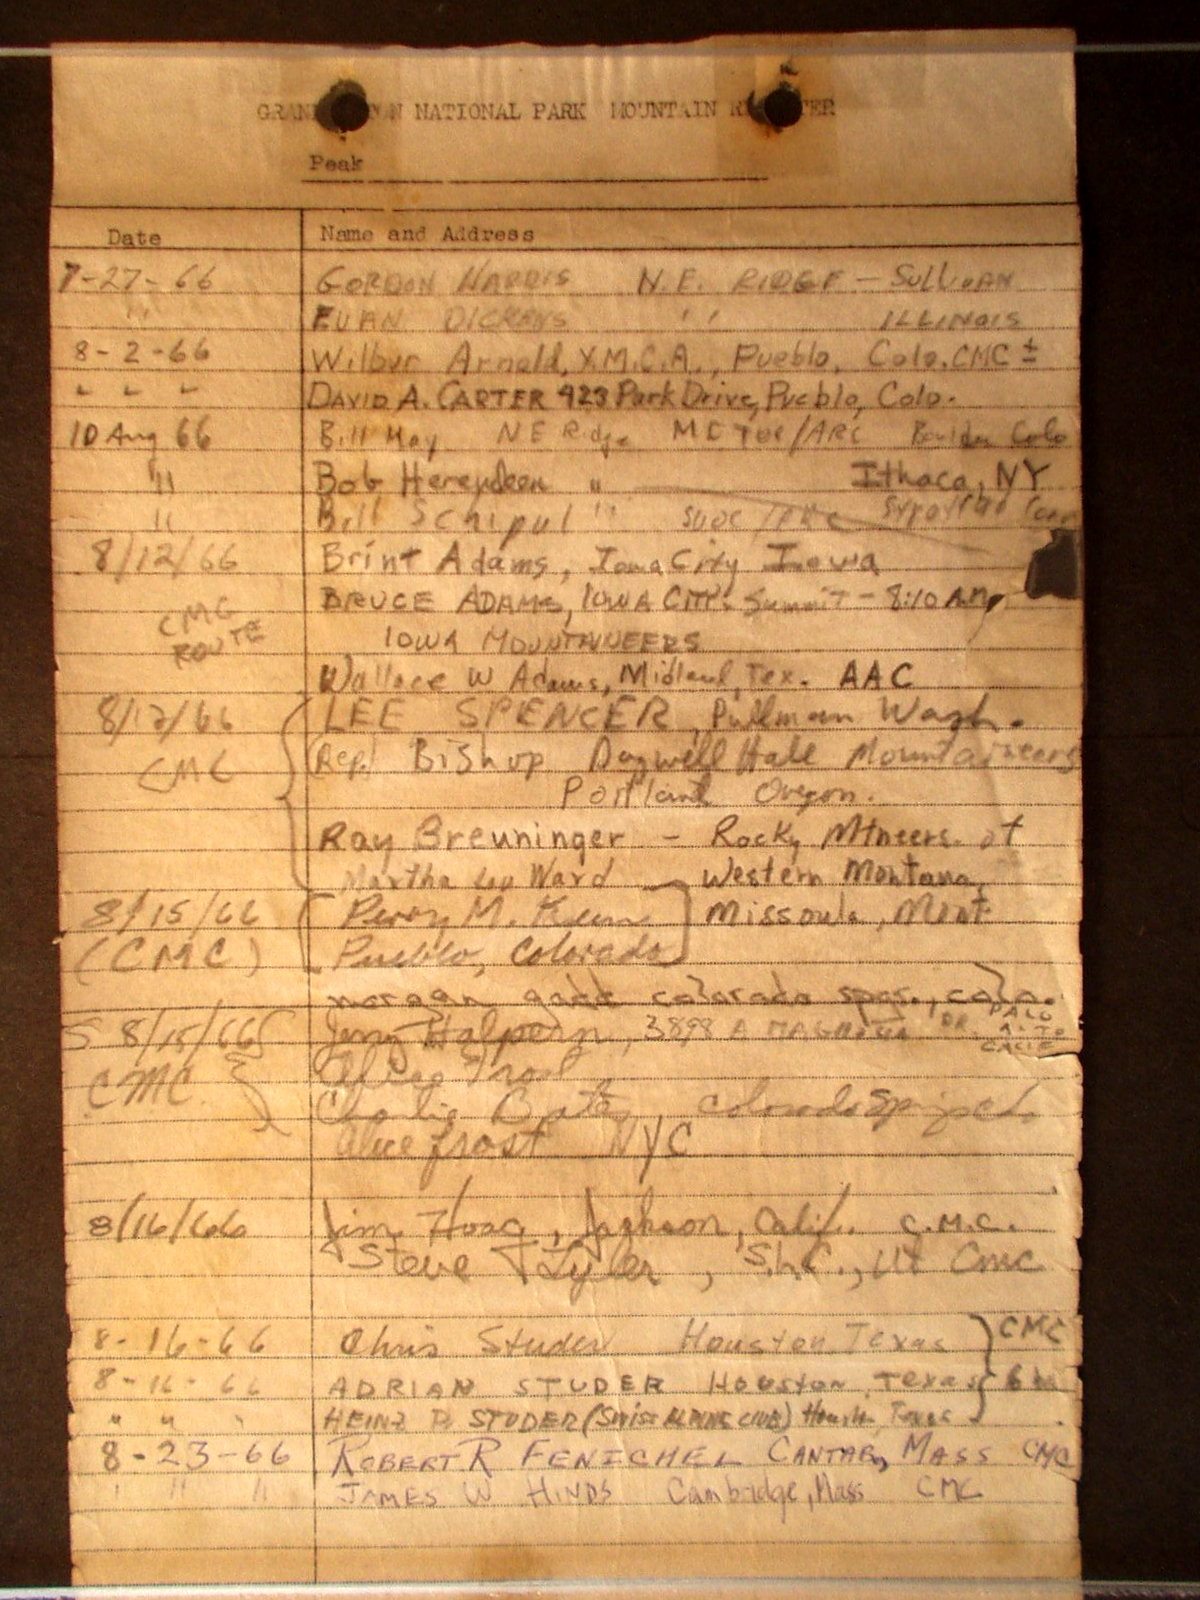 GRAND TETON NATIONAL PARK MOUNTAIN REGISTER
Peak
Date Name and Address
7-27-66 GORDON HARRIS N.E. RIDGE - SULLIVAN
" EVAN " ILLINOIS
8-2-66 Wilbur Arnold, Y.M.C.A., Pueblo, Colo. CMC ±
" " " DAVID A. CARTER 423 Park Drive, Pueblo, Colo.
10 Aug 66 Bill May NE Ridge Boulder Colo
" Bob Herendeen " Ithaca, NY
" Bill Schipul "
8/12/66 Brint Adams, Iowa City Iowa
BRUCE ADAMS, IOWA CITY. Summit - 8:10 AM,
CMC ROUTE IOWA MOUNTAINEERS
Wallace W Adams, Midland, Tex. AAC
8/12/66 LEE SPENCER, Pullman Wash.
CMC Rep. Bishop Hall Mountaineers
Portland Oregon.
Ray Breuninger - Rocky Mtneers. of
Martha Lou Ward Western Montana,
8/15/66 Perry M. Missoula, Mont
(CMC) Pueblo, Colorado
morgan gadd colorado spgs., colo.
8/15/66 Jerry Halpern, 3898 A MAGNOLIA DR. PALO ALTO CALIF
CMC Alice Frost
Charlie Bates, Colorado Springs
Alice Frost NYC
8/16/66 Jim Hoag, Calif. C.M.C.
Steve Tyler, S.L.C., Ut CMC
8-16-66 Chris Studer Houston Texas CMC
8-16-66 ADRIAN STUDER HOUSTON, TEXAS
" " " HEINZ P. STUDER (SWISS ALPINE CLUB) Houston Texas
8-23-66 ROBERT R FENICHEL CANTAB, MASS CMC
" " " JAMES W HINDS Cambridge, Mass CMC